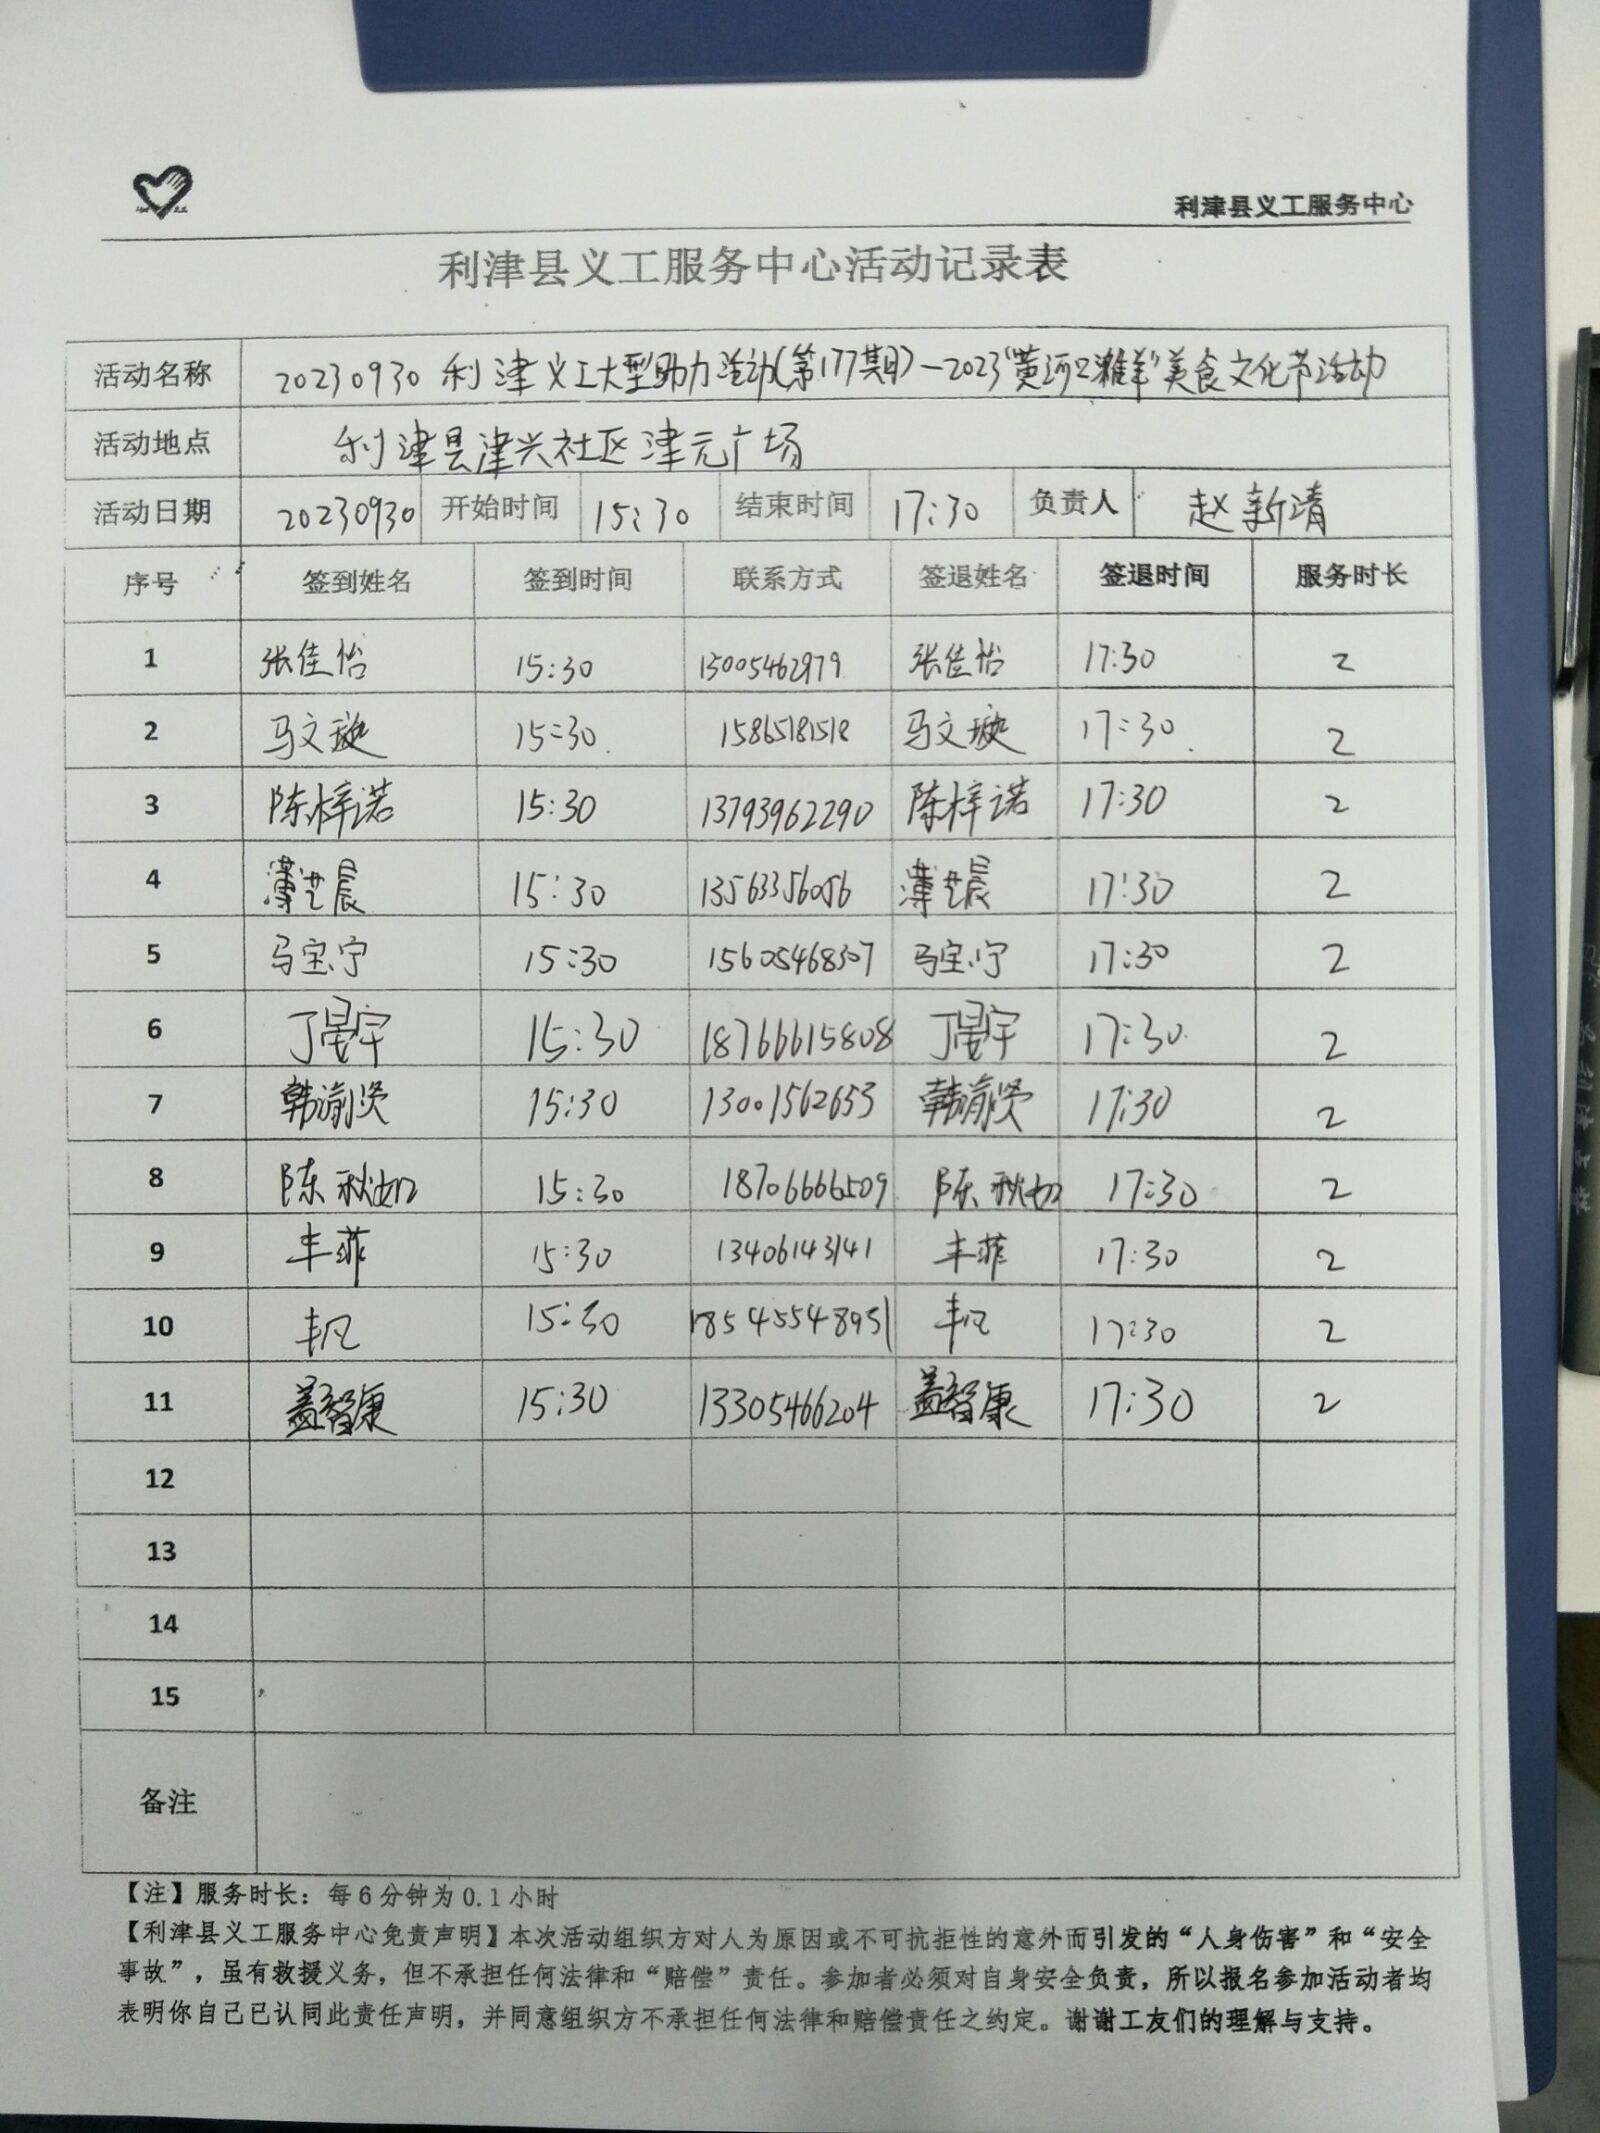 利津县义工服务中心
利津县义工服务中心活动记录表
活动名称 20230930利津义工大型助力活动(第177期)—2023"黄河口滩羊"美食文化节活动
活动地点 利津县津兴社区津元广场
活动日期 20230930 开始时间 15:30 结束时间 17:30 负责人 赵新靖
序号 签到姓名 签到时间 联系方式 签退姓名 签退时间 服务时长
1 张佳怡 15:30 13005462979 张佳怡 17:30 2
2 马文璇 15:30 15865181518 马文璇 17:30 2
3 陈梓诺 15:30 13793962290 陈梓诺 17:30 2
4 薄艺晨 15:30 13563356056 薄艺晨 17:30 2
5 马宝宁 15:30 15605468307 马宝宁 17:30 2
6 丁晏宇 15:30 18766615808 丁晏宇 17:30 2
7 韩渝贤 15:30 13001562653 韩渝贤 17:30 2
8 陈秋如 15:30 18706666509 陈秋如 17:30 2
9 丰菲 15:30 13406143141 丰菲 17:30 2
10 丰凡 15:30 18545548951 丰凡 17:30 2
11 盖智康 15:30 13305466204 盖智康 17:30 2
12
13
14
15
备注
【注】服务时长：每6分钟为0.1小时
【利津县义工服务中心免责声明】本次活动组织方对人为原因或不可抗拒性的意外而引发的“人身伤害”和“安全
事故”，虽有救援义务，但不承担任何法律和“赔偿”责任。参加者必须对自身安全负责，所以报名参加活动者均
表明你自己已认同此责任声明，并同意组织方不承担任何法律和赔偿责任之约定。谢谢工友们的理解与支持。